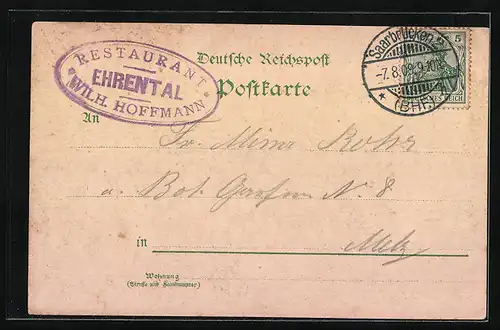 RESTAURANT
EHRENTAL
WILH. HOFFMANN
Deutsche Reichspost
Postkarte
Saarbrücken
-7.8.
(BHF)
5
REICH
An
Fr. Minna Rohr
a. Bot. Garten N. 8
in Metz
Wohnung
(Straße und Hausnummer)